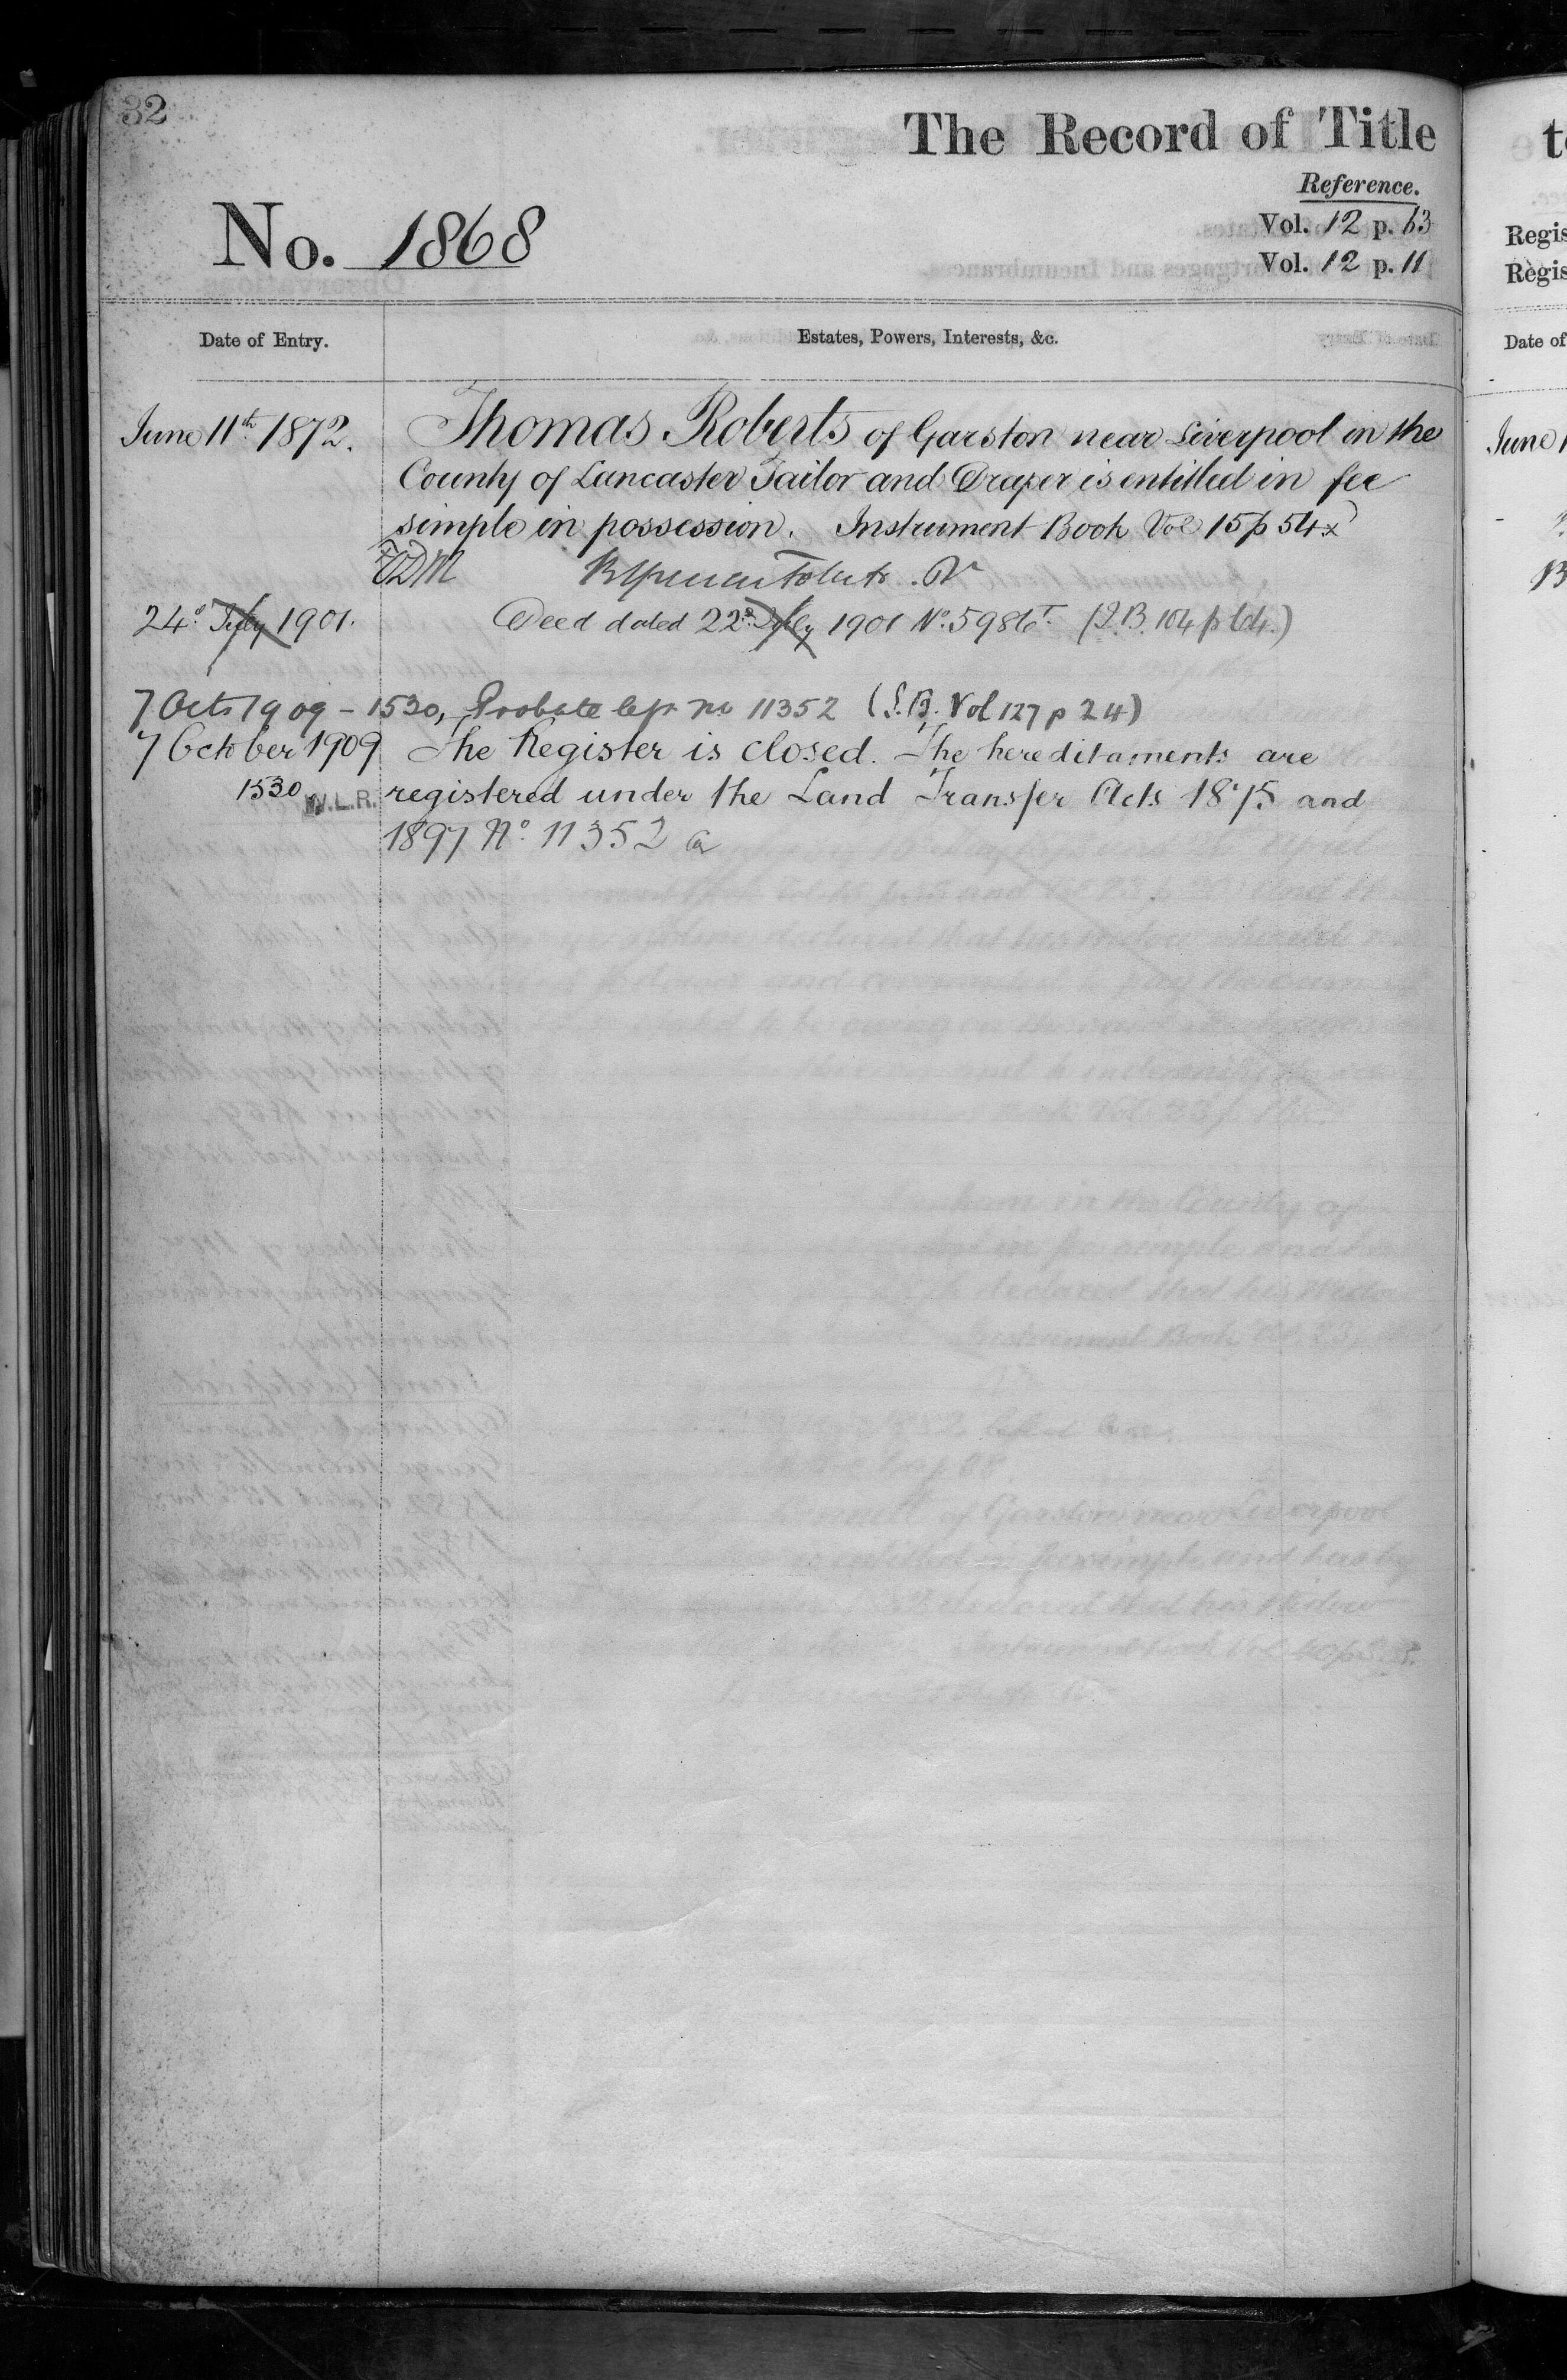 32
The Record of Title
Reference.
No. 1868
Vol. 12 p. 63
Vol. 12 p. 11
Date of Entry.
Estates, Powers, Interests, &c.
June 11th 1872.
Thomas Roberts of Garston near Liverpool in the
County of Lancaster Tailor and Draper is entitled in fee
simple in possession. Instrument Book Vol 15 p 54
24th July 1901.
Deed dated 22nd July 1901 No. 5986 (I.B. 104 p 64.)
7 Oct 1909 - 1530, Probate no 11352 (I.B. Vol 127 p 24)
7 October 1909 The Register is closed. The hereditaments are
1530 W.L.R. registered under the Land Transfer Acts 1875 and
1897 No. 11352
t
Regis
Regis
Date of
June 1